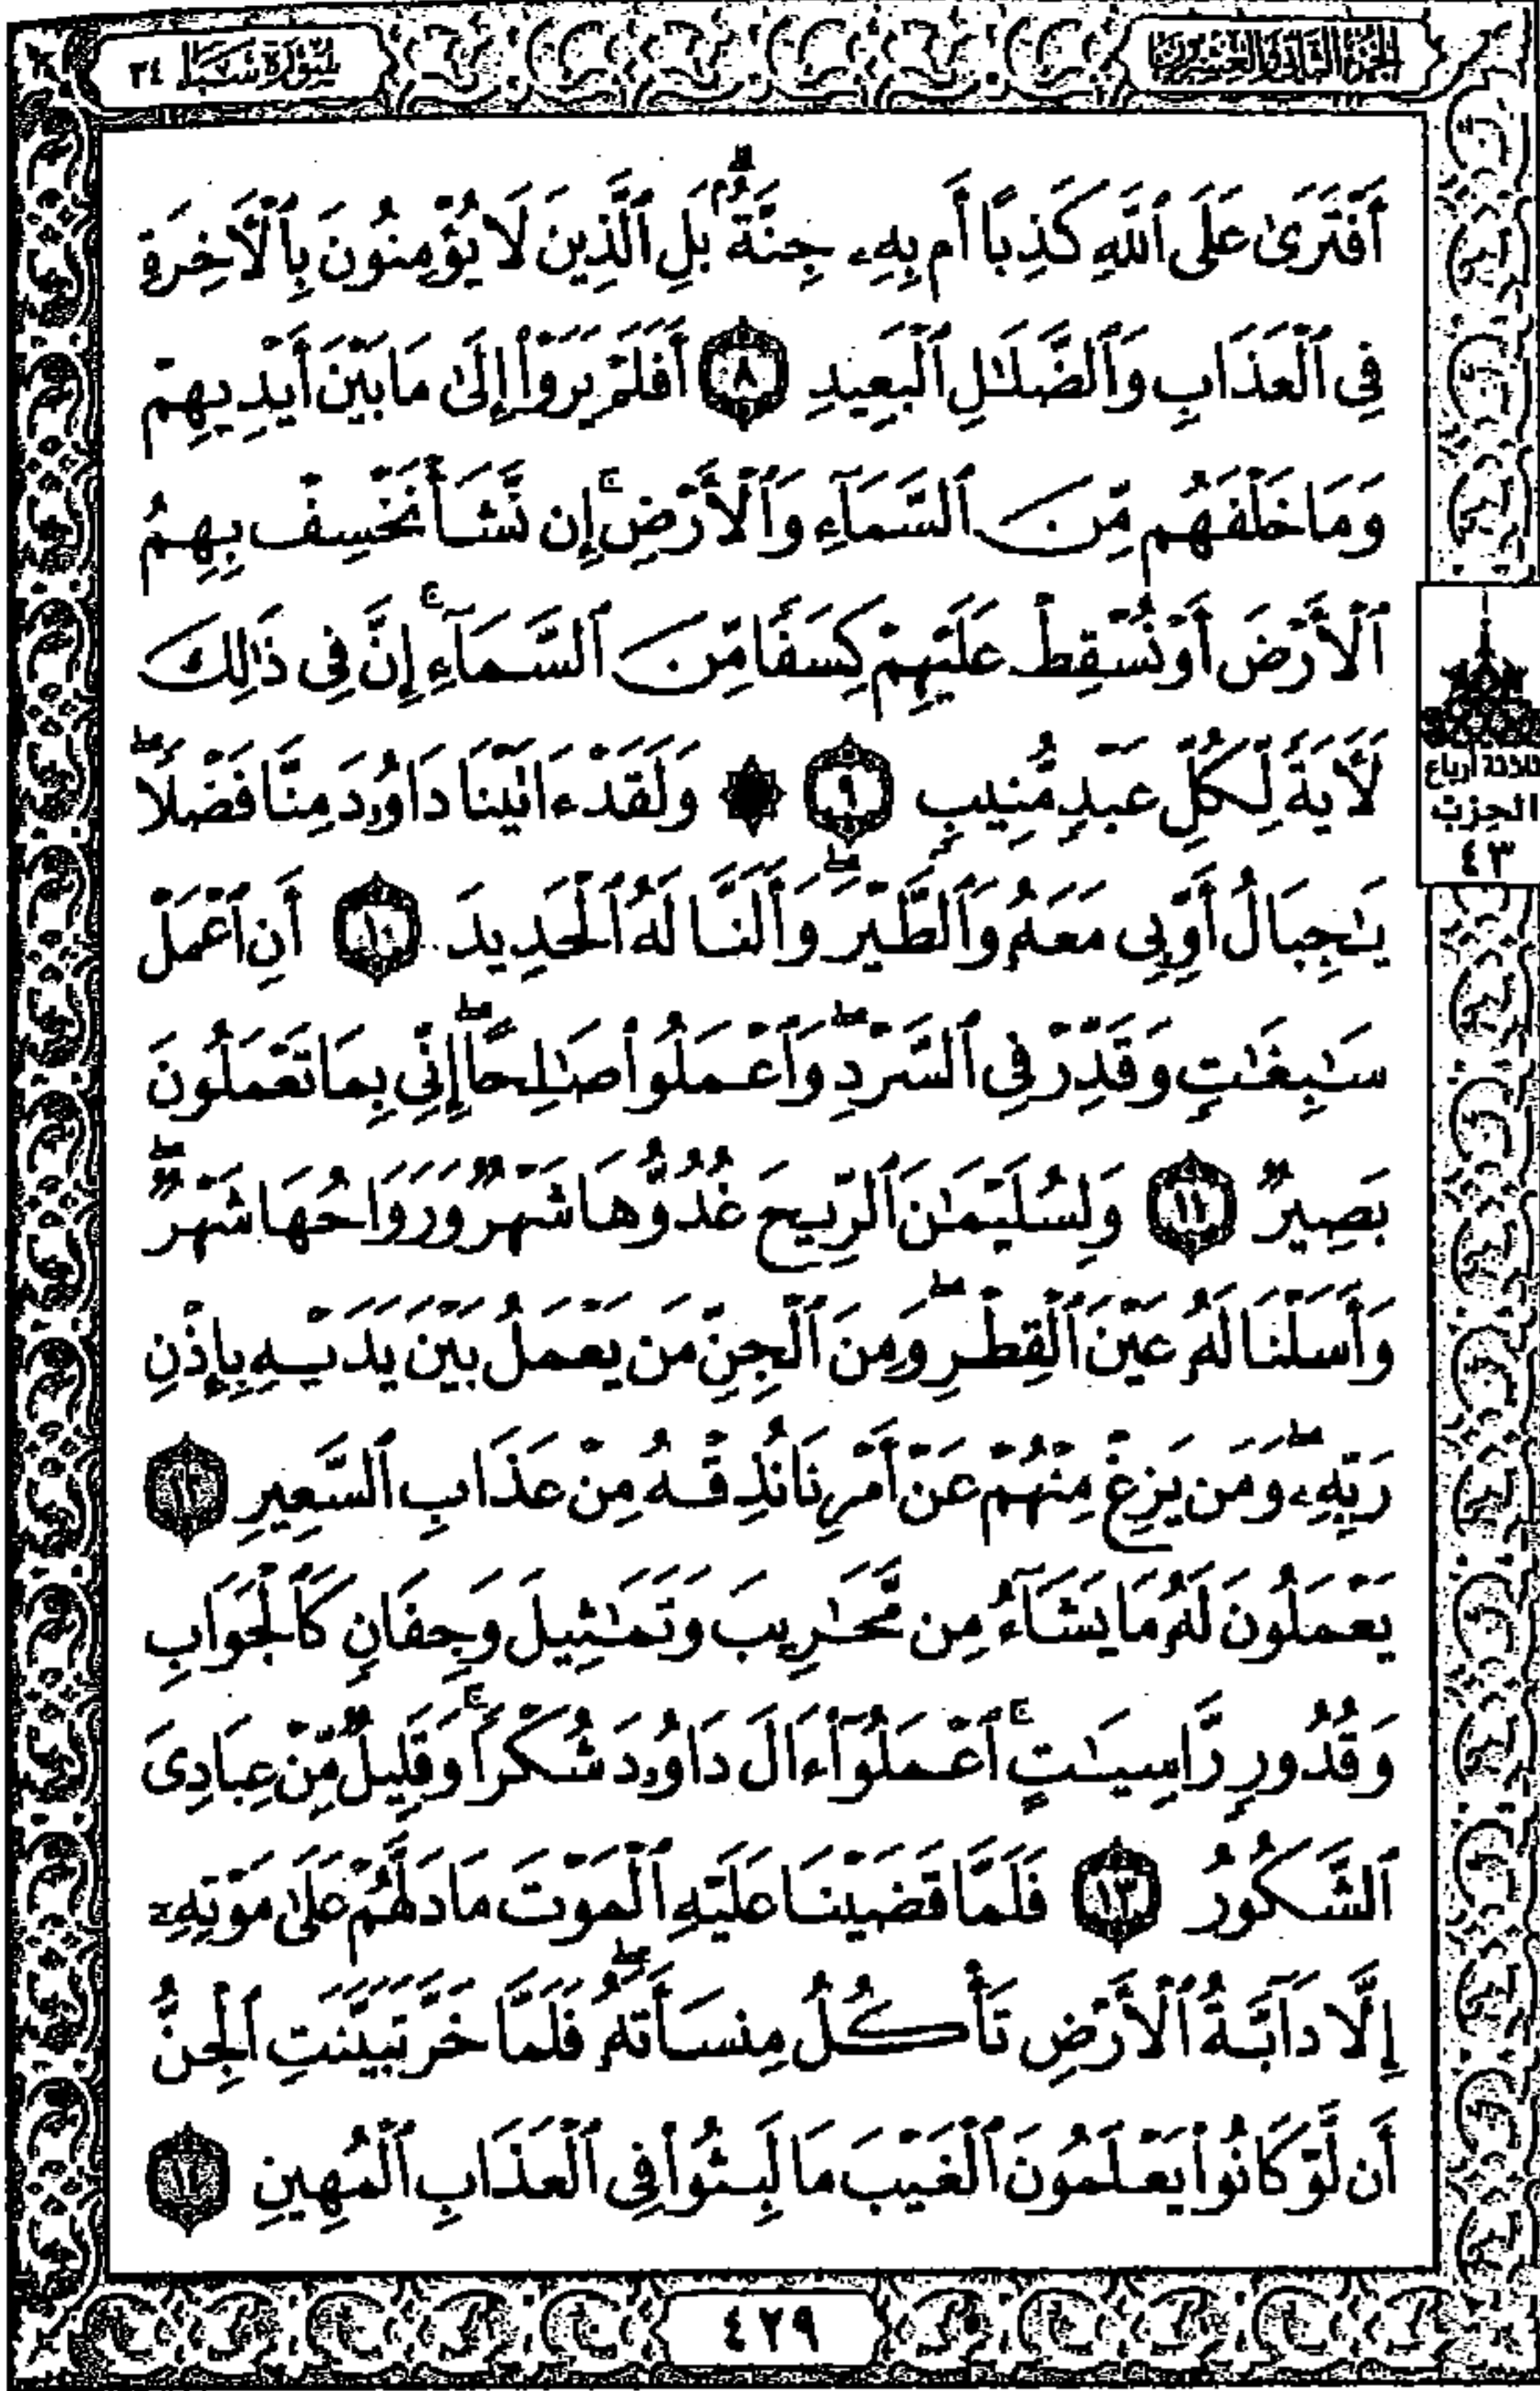 الجزء الثاني والعشرون
سورة سبأ ٣٤
أَفْتَرَىٰ عَلَى ٱللَّهِ كَذِبًا أَم بِهِۦ جِنَّةٌۢ ۗ بَلِ ٱلَّذِينَ لَا يُؤْمِنُونَ بِٱلْأَخِرَةِ
فِى ٱلْعَذَابِ وَٱلضَّلَـٰلِ ٱلْبَعِيدِ ٨ أَفَلَمْ يَرَوْا۟ إِلَىٰ مَا بَيْنَ أَيْدِيهِمْ
وَمَا خَلْفَهُم مِّنَ ٱلسَّمَآءِ وَٱلْأَرْضِ ۚ إِن نَّشَأْ نَخْسِفْ بِهِمُ
ٱلْأَرْضَ أَوْ نُسْقِطْ عَلَيْهِمْ كِسَفًا مِّنَ ٱلسَّمَآءِ ۚ إِنَّ فِى ذَٰلِكَ
لَـَٔايَةً لِّكُلِّ عَبْدٍ مُّنِيبٍ ٩ ۞ وَلَقَدْ ءَاتَيْنَا دَاوُۥدَ مِنَّا فَضْلًا ۖ
يَـٰجِبَالُ أَوِّبِى مَعَهُۥ وَٱلطَّيْرَ ۖ وَأَلَنَّا لَهُ ٱلْحَدِيدَ ١٠ أَنِ ٱعْمَلْ
سَـٰبِغَـٰتٍ وَقَدِّرْ فِى ٱلسَّرْدِ ۖ وَٱعْمَلُوا۟ صَـٰلِحًا ۖ إِنِّى بِمَا تَعْمَلُونَ
بَصِيرٌ ١١ وَلِسُلَيْمَـٰنَ ٱلرِّيحَ غُدُوُّهَا شَهْرٌ وَرَوَاحُهَا شَهْرٌ ۖ
وَأَسَلْنَا لَهُۥ عَيْنَ ٱلْقِطْرِ ۖ وَمِنَ ٱلْجِنِّ مَن يَعْمَلُ بَيْنَ يَدَيْهِ بِإِذْنِ
رَبِّهِۦ ۖ وَمَن يَزِغْ مِنْهُمْ عَنْ أَمْرِنَا نُذِقْهُ مِنْ عَذَابِ ٱلسَّعِيرِ ١٢
يَعْمَلُونَ لَهُۥ مَا يَشَآءُ مِن مَّحَـٰرِيبَ وَتَمَـٰثِيلَ وَجِفَانٍ كَٱلْجَوَابِ
وَقُدُورٍ رَّاسِيَـٰتٍ ۚ ٱعْمَلُوٓا۟ ءَالَ دَاوُۥدَ شُكْرًا ۚ وَقَلِيلٌ مِّنْ عِبَادِىَ
ٱلشَّكُورُ ١٣ فَلَمَّا قَضَيْنَا عَلَيْهِ ٱلْمَوْتَ مَا دَلَّهُمْ عَلَىٰ مَوْتِهِۦٓ
إِلَّا دَآبَّةُ ٱلْأَرْضِ تَأْكُلُ مِنسَأَتَهُۥ ۖ فَلَمَّا خَرَّ تَبَيَّنَتِ ٱلْجِنُّ
أَن لَّوْ كَانُوا۟ يَعْلَمُونَ ٱلْغَيْبَ مَا لَبِثُوا۟ فِى ٱلْعَذَابِ ٱلْمُهِينِ ١٤
ثلاثة أرباع
الحزب
٤٣
٤٢٩